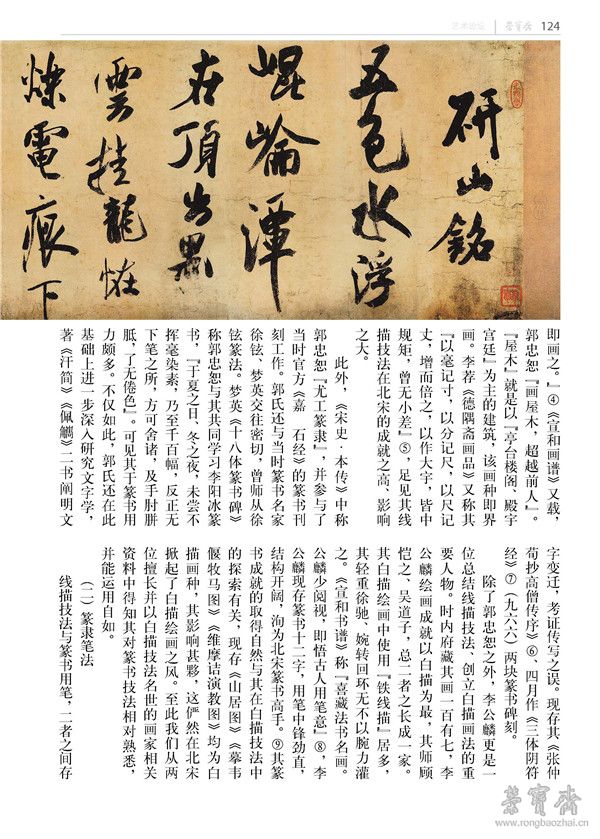 艺术论坛
荣宝斋
124
研山銘
五色水浮
崐崘潭
在頂出黑
雲挂龍恠
爍電痕下
即画之。』④《宣和画谱》又载,
郭忠恕『画屋木,超越前人』。
『屋木』就是以『亭台楼阁、殿宇
宫廷』为主的建筑,该画种即界
画。李荐《德隅斋画品》又称其
『以毫记寸,以分记尺,以尺记
丈,增而倍之,以作大宇,皆中
规矩,曾无小差』⑤,足见其线
描技法在北宋的成就之高、影响
之大。
此外,《宋史·本传》中称
郭忠恕『尤工篆隶』,并参与了
当时官方《嘉 石经》的篆书刊
刻工作。郭氏还与当时篆书名家
徐铉、梦英交往密切,曾师从徐
铉篆法。梦英《十八体篆书碑》
称郭忠恕与其共同学习李阳冰篆
书,『于夏之日、冬之夜,未尝不
挥毫染素,乃至千百幅,反正无
下笔之所,方可舍诸,及手肘胼
胝,了无倦色』。可见其于篆书用
力颇多。不仅如此,郭氏还在此
基础上进一步深入研究文字学,
著《汗简》《佩觿》二书阐明文
字变迁,考证传写之误。现存其《张仲
荀抄高僧传序》⑥、四月作《三体阴符
经》⑦(九六六)两块篆书碑刻。
除了郭忠恕之外,李公麟更是一
位总结线描技法、创立白描画法的重
要人物。时内府藏其画一百有七,李
公麟绘画成就以白描为最,其师顾
恺之、吴道子,总二者之长成一家。
其白描绘画中使用『铁线描』居多,
其轻重徐驰、婉转回环无不以腕力灌
之。《宣和书谱》称『喜藏法书名画。
公麟少阅视,即悟古人用笔意』⑧,李
公麟现存篆书十二字,用笔中锋劲直,
结构开阔,洵为北宋篆书高手。⑨其篆
书成就的取得自然与其在白描技法中
的探索有关,现存《山居图》《摹韦
偃牧马图》《维摩诘演教图》均为白
描画种,其影响甚夥,这俨然在北宋
掀起了白描绘画之风。至此我们从两
位擅长并以白描技法名世的画家相关
资料中得知其对篆书技法相对熟悉,
并能运用自如。
(二)篆隶笔法
线描技法与篆书用笔,二者之间存
荣宝斋
www.rongbaozhai.cn